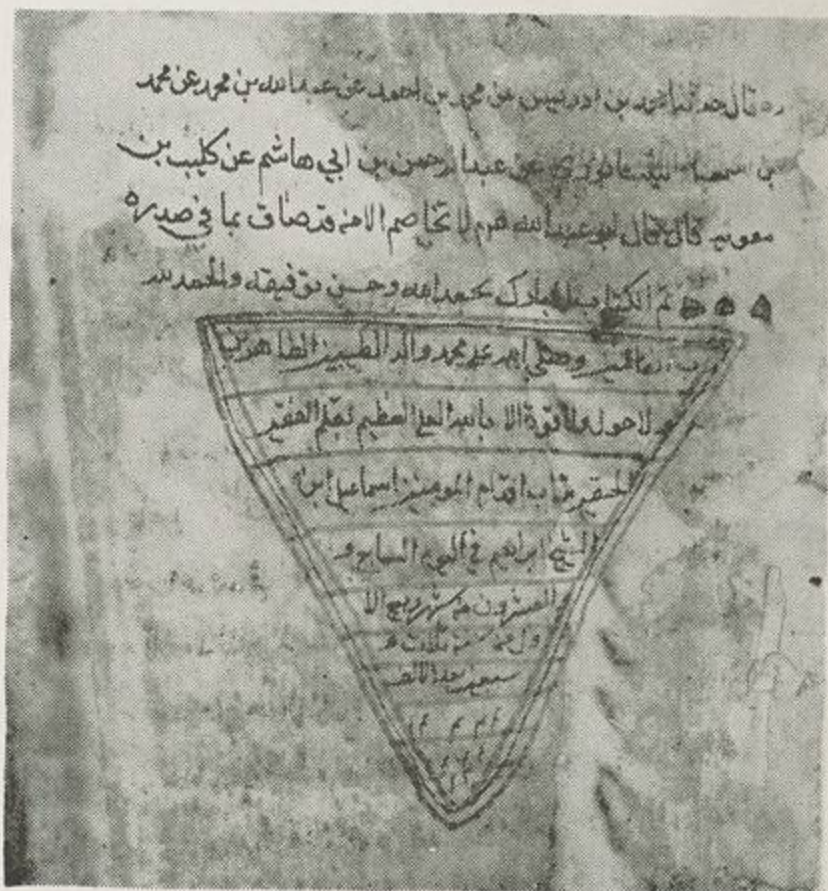 ره قال حدثنا احمد بن ادريس عن محمد بن احمد عن عبد الله بن محمد عن محمد
بن اسمعيل عن عبد الرحمن بن ابي هاشم عن كليب بن
معويه قال قال ابو عبد الله لا تخاصم الا من قد ضاق بما في صدره
تم الكتاب المبارك بحمد الله وحسن توفيقه والحمد لله
رب العالمين وصلى الله على محمد واله الطيبين الطاهرين
ولا حول ولا قوة الا بالله العلي العظيم بقلم الفقير
الحقير تراب اقدام المومنين اسماعيل ابن
الشيخ ابراهيم في اليوم السابع و
العشرون من شهر ربيع الا
ول سنة ثلاث و
سبعين بعد الالف
م م م م
م م م
م م